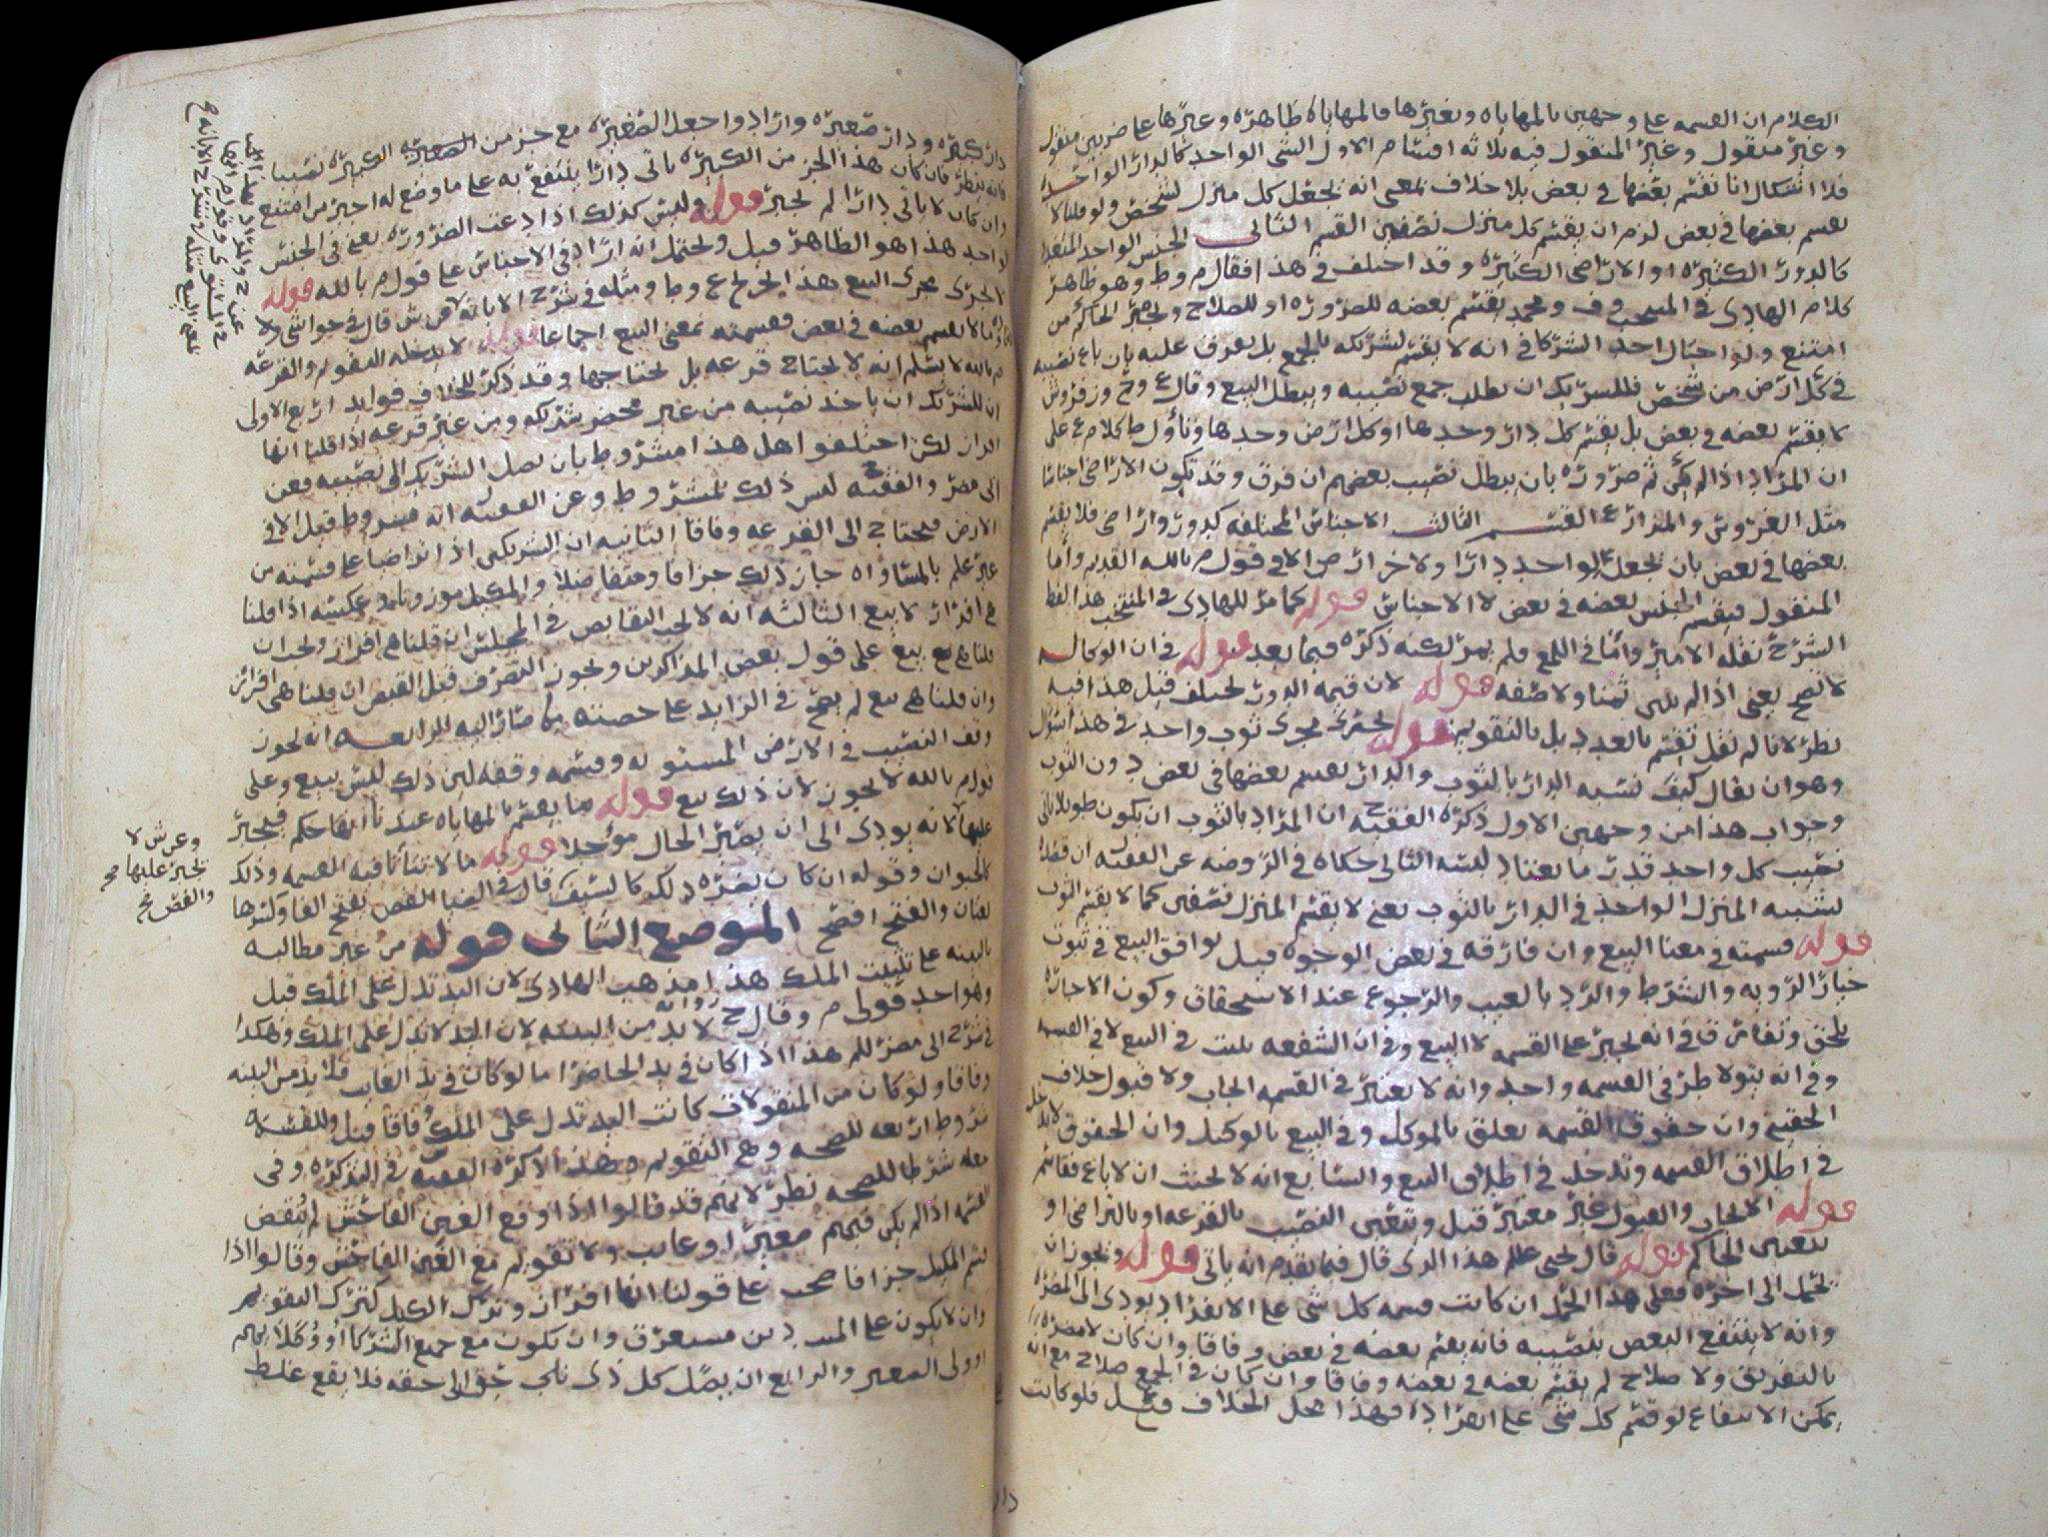 الكلام ان القسمه على وجهين بالمهاياه وبغيرها فالمهاياه ظاهره وغيرها على ضربين منقول
وغير منقول وغير المنقول فيه ثلاثه اقسام الاول الشى الواحد كالدار الواحده
فلا اشكال انا نقسم بعضها فى بعض بلا خلاف بمعنى انه يجعل كل منزل لشخص ولو قلنا لا
يقسم بعضها فى بعض لزم ان يقسم كل منزل نصفين القسم الثانى الجنس الواحد المتعدد
كالدور الكثيره او الاراضى الكثيره وقد اختلف فى هذا فقال م وط وهو ظاهر
كلام الهادى فى المنتخب وف ومحمد يقسم بعضه للضروره او للصلاح ويجبر الحاكم من
امتنع ولو احتال احد الشركا فى انه لا يقسم لشريكه بالجمع بل يفرق عليه بان باع نصيبه
فى كل ارض من شخص فللشريك ان يطلب جمع نصيبه ويبطل البيع وقال ع وح وزفر وش
لا يقسم بعضه فى بعض بل يقسم كل دار وحدها او كل ارض وحدها وتأول ط كلام ع على
ان المراد اذا لم يكن ثم ضروره بان يبطل نصيب بعضهم ان فرق وقد تكون الاراضى اجناسا
مثل الغروس والمزارع القسم الثالث الاجناس المختلفه كدور واراضى فلا يقسم
بعضها فى بعض بان يجعل لواحد دارا ولاخر ارض الا فى قول م بالله القديم وأما
المنقول فيقسم الجنس بعضه فى بعض لا الاجناس قوله كما مر للهادى فى المنتخب هذا لفظ
الشرح نقله الامير وأما فى اللمع فلم يمر لكنه ذكره فيما بعد قوله فى ان الوكاله
لا تصح يعنى اذا لم يبين ثمنا ولا صفه قوله لان قيمه الدور تختلف قيل هذا فيه
نظر لانا لم نقل تقسم بالعدد بل بالتقويم قوله يجرى مجرى ثوب واحد فى هذا سؤال
وهو ان يقال كيف نشبه الدار بالثوب والدار يقسم بعضها فى بعض دون الثوب
وجواب هذا من وجهين الاول ذكره الفقيه ح ان المراد بالثوب ان يكون طويلا ياتى
نصيب كل واحد قدر ما يعتاد لبسه الثانى حكاه فى الروضه عن الفقيه ان قصد
تشبيه المنزل الواحد فى الدار بالثوب يعنى لا يقسم المنزل نصفين كما لا يقسم الثوب
قوله قسمته فى معنا البيع وان فارقه فى بعض الوجوه قيل يوافق البيع فى ثبوت
خيار الرويه والشرط والرد بالعيب والرجوع عند الاستحقاق وكون الاجازه
تلحق وتفارق فى انه يجبر على القسمه لا البيع وفى ان الشفعه تثبت فى البيع لا فى القسمه
وفى انه يتولا طرفى القسمه واحد وانه لا يعتبر فى القسمه ايجاب ولا قبول خلاف
الحقينى وان حقوق القسمه تعلق بالموكل وفى البيع بالوكيل وان الحقوق لا تدخل
فى اطلاق القسمه وتدخل فى اطلاق البيع والسابع انه لا يحنث ان لا باع فقاسم
قوله الايجاب والقبول غير معتبر قيل ويتعين النصيب بالقرعه او بالتراضى او
بتعيين الحاكم قوله قال يحيى عليلم هذا الذى قال فيما تقدم انه ياتى قوله ويجوز ان
يحمل الى اخره فعلى هذا الحمل ان كانت قسمه كل شى على الانفراد يودى الى المضره
وانه لا ينتفع البعض بنصيبه فانه يقسم بعضه فى بعض وفاقا وان كان لا مضره
بالتفريق ولا صلاح لم يقسم بعضه فى بعضه وفاقا وان كان فى الجمع صلاح مع انه
يمكن الانتفاع لو قسم كل شى على انفراد فهذا محل الخلاف فلو كانت
دار
دار كبيره ودار صغيره وارادوا جعل الصغيره مع جز من الكبيره نصيبا
فانه ينظر فان كان هذا الجز من الكبيره ياتى دارا ينتفع به على ما وضع له اجبر من امتنع
وان كان لا ياتى دارا لم يجبر قوله وليس كذلك اذا دعت الضروره يعنى فى الجنس
الواحد هذا هو الظاهر قيل ويحتمل انه اراد فى الاجناس على قول م بالله قوله
لا يجرى مجرى البيع هذا لخرج ع وط ومثله فى شرح الابانه قال فى حواشى
ما لا يقسم بعضه فى بعض فقسمته بمعنى البيع اجماعا قوله لا يدخله التقويم والقرعه
م بالله لا يسلم انه لا يحتاج قرعه بل يحتاجها وقد ذكر للخلاف فوايد اربع الاولى
ان للشريك ان ياخذ نصيبه من غير محضر شريكه ومن غير قرعه اذا قلنا انها
افراز لكن اختلفوا هل هذا مشروط بان يصل الشريك الى نصيبه فعن
ابى مضر والفقيه ح ليس ذلك بمشروط وعن الفقيه انه مشروط قيل الا فى
الارض فيحتاج الى القرعه وفاقا الثانيه ان الشريكين اذا تراضيا على قسمته من
غير علم بالمساواه جاز ذلك جزافا ومتفاضلا والمكيل موزونا وعكسه اذا قلنا
هى افراز لا بيع الثالثه انه لا يجب التقابض فى المجلس ان قلنا هى افراز ويجب ان
قلنا هى بيع على قول بعض المذاكرين ويجوز التصرف قبل القبض ان قلنا هى افراز
وان قلنا هى بيع لم يصح فى الزايد على حصته مما صار اليه الرابعه انه يجوز
وقف النصيب فى الارض المستويه وقسمه وقفه لان ذلك ليس ببيع وعلى
قول م بالله لا يجوز لان ذلك بيع قوله ما يقسم بالمهاياه عندنا انها حكم فيجبر
عليها لانه يودى الى ان يصير الحال مؤجلا قوله ما لا تتاتا فيه القسمه وذلك
كالحيوان وقوله ان كان يضره ذلك كالسيف قال فى الضيا الفص بفتح الفا وكسرها
لغتان والفتح افصح الموضع الثانى قوله من غير مطالبه
بالبينه على تثبيت الملك هذا مذهب الهادى لان اليد تدل على الملك قيل
وهو احد قولى م وقال ح لا بد من البينه لان اليد لا تدل على الملك وهكذا
فى شرح ابى مضر للم هذا اذا كان فى يد الحاضر اما لو كان فى يد الغايب فلا بد من البينه
وفاقا ولو كان من المنقولات كانت اليد تدل على الملك وفاقا قيل وللقسمه
شروط اربعه للصحه وهى التقويم وهذا ذكره الفقيه فى التذكره وفى
جعله شرطا للصحه نظر لانهم قد قالوا اذا وقع الغبن الفاحش لم تنقض
القسمه اذا لم يكن فيهم صغيرا او غايب ولا تقويم مع الغبن الفاحش وقالوا اذا
قسم المكيل جزافا صحت على قولنا انها افراز وترك الكيل كترك التقويم
وان لا يكون على الميت دين مستغرق وان تكون مع جميع الشركا او وكلائهم
او ولى الصغير والرابع ان يصل كل ذى حق الى حقه فلا يقع غلط
وعن ش لا
يجبر عليها